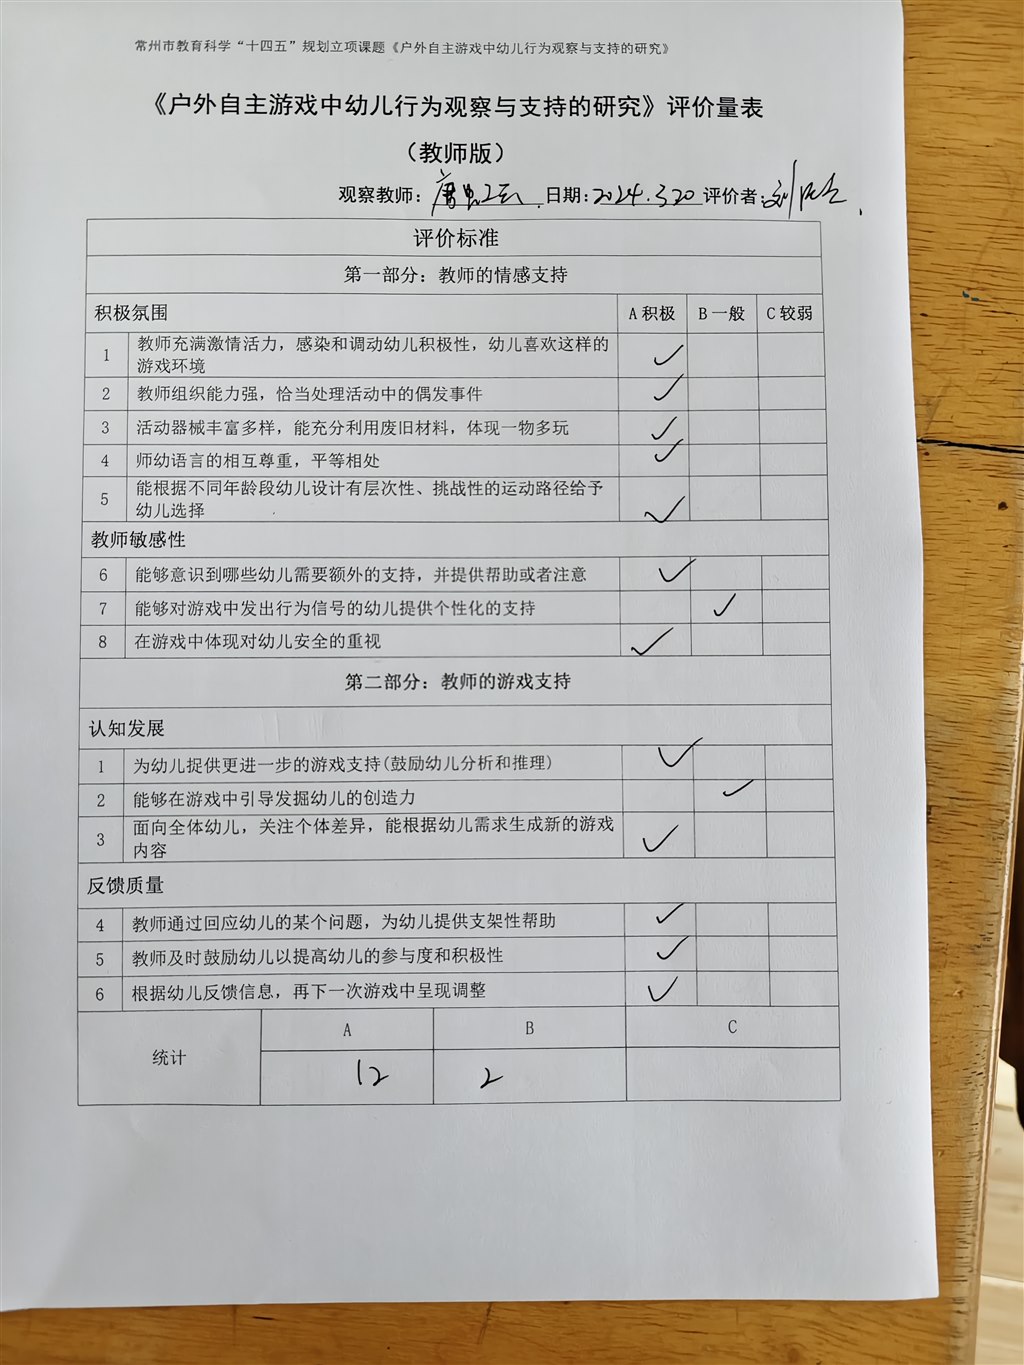 常州市教育科学“十四五”规划立项课题《户外自主游戏中幼儿行为观察与支持的研究》
《户外自主游戏中幼儿行为观察与支持的研究》评价量表
（教师版）
观察教师： 日期：2024.3.20 评价者：刘
评价标准
第一部分：教师的情感支持
积极氛围 A 积极 B 一般 C 较弱
1 教师充满激情活力，感染和调动幼儿积极性，幼儿喜欢这样的
游戏环境 ✓
2 教师组织能力强，恰当处理活动中的偶发事件 ✓
3 活动器械丰富多样，能充分利用废旧材料，体现一物多玩 ✓
4 师幼语言的相互尊重，平等相处 ✓
5 能根据不同年龄段幼儿设计有层次性、挑战性的运动路径给予
幼儿选择 ✓
教师敏感性
6 能够意识到哪些幼儿需要额外的支持，并提供帮助或者注意 ✓
7 能够对游戏中发出行为信号的幼儿提供个性化的支持 ✓
8 在游戏中体现对幼儿安全的重视 ✓
第二部分：教师的游戏支持
认知发展
1 为幼儿捉供更进一步的游戏支持(鼓励幼儿分析和推理) ✓
2 能够在游戏中引导发掘幼儿的创造力 ✓
3 面向全体幼儿，关注个体差异，能根据幼儿需求生成新的游戏
内容 ✓
反馈质量
4 教师通过回应幼儿的某个问题，为幼儿提供支架性帮助 ✓
5 教师及时鼓励幼儿以提高幼儿的参与度和积极性 ✓
6 根据幼儿反馈信息，再下一次游戏中呈现调整 ✓
统计 A B C
12 2